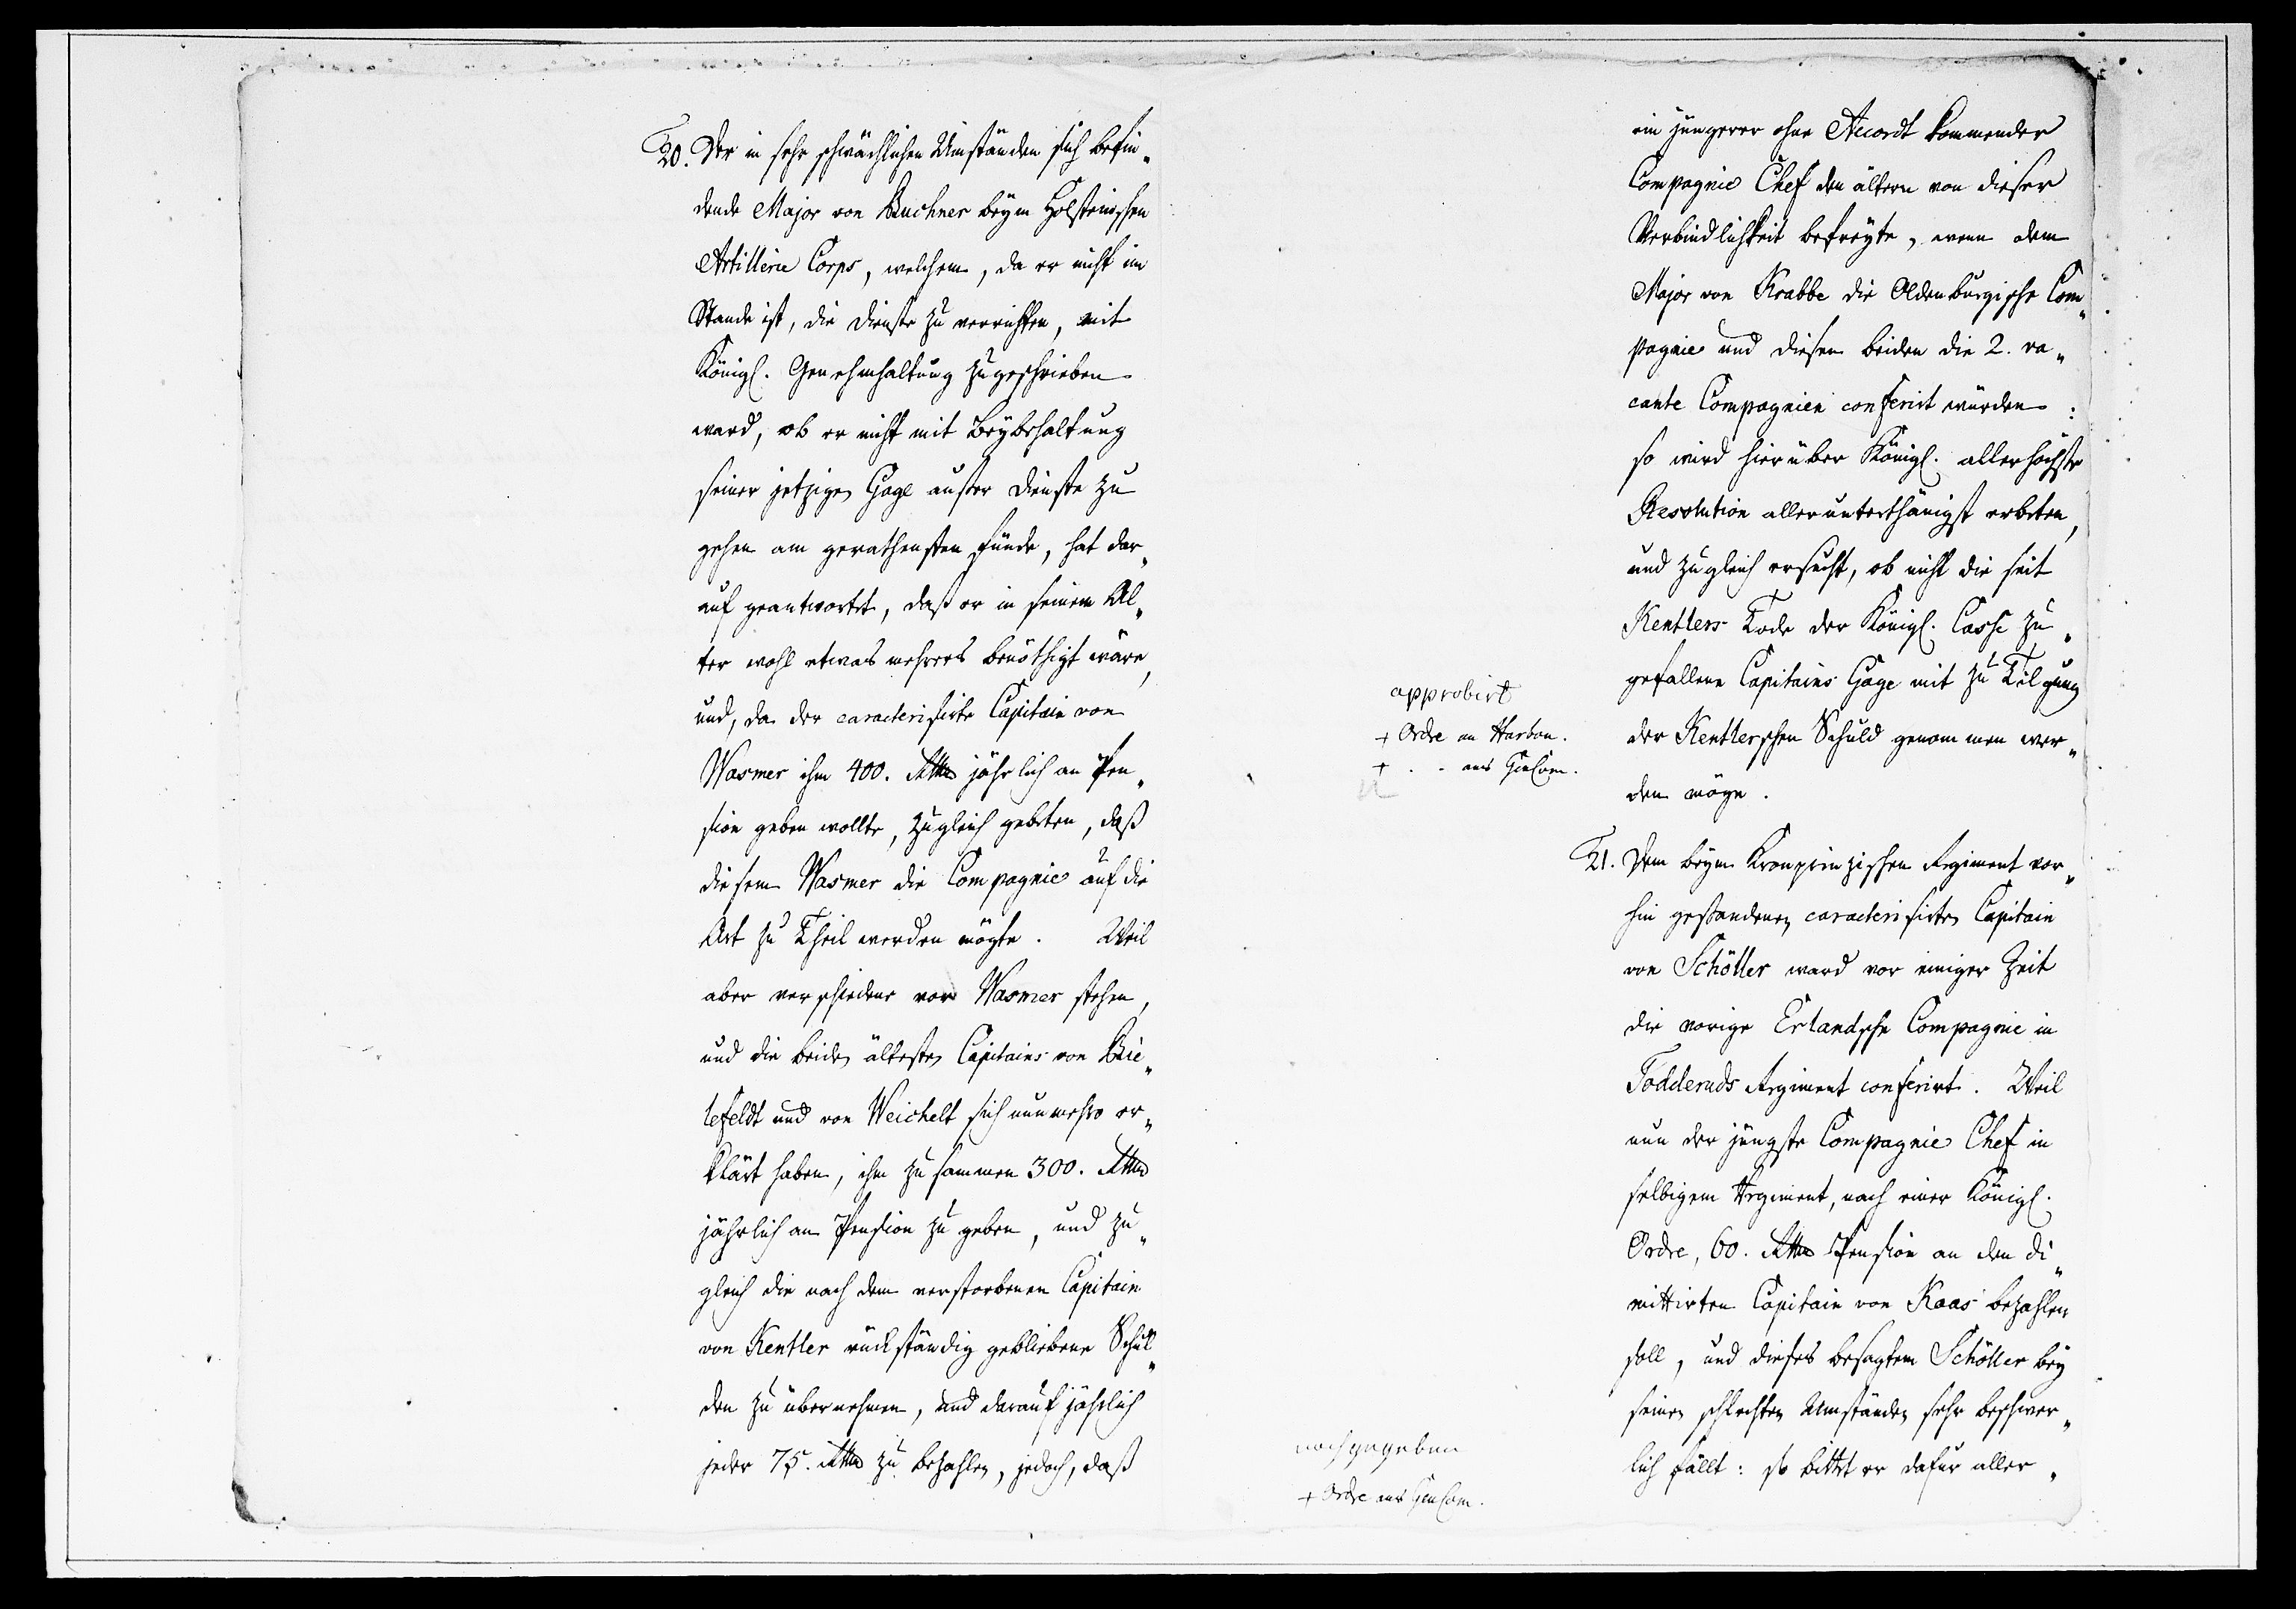 20. Der in sehr schwächlichen Umständen sich befin„
dende Major von Buchner beym Holsteinischen
Artillerie Corps, welchem, da er nicht im
Stande ist, die Dienste zu verrichten, mit
Königl. Genehmhaltung zugeschrieben
ward, ob er nicht mit Beybehaltung
seiner jetzigen Gage außer Dienste zu
gehen am gerathensten fünde, hat dar„
auf geantwortet, daß er in seinem Al„
ter wohl etwas mehrers benöthigt wäre,
und, da der caracterisirte Capitain von
Wasmer ihm 400. Rthlr jährlich an Pen„
sion geben wollte, zugleich gebeten, daß
diesem Wasmer die Compagnie auf die
Art zu Theil werden mögte. Weil
aber verschiedene vor Wasmer stehen,
und die beiden ältesten Capitains von Bie„
lefeldt und von Weichelt sich nunmehro er„
klärt haben, ihm zusammen 300. Rthlr
jährlich an Pension zu geben, und zu„
gleich die nach dem verstorbenen Capitain
von Kentler rückständig gebliebene Schul„
den zu übernehmen, und darauf jährlich
jeder 75. Rthlr zu bezahlen, jedoch, daß
ein jüngerer ohne Accordt kommender
Compagnie Chef den ältern von dieser
Verbindlichkeit befreyte, wenn dem
Major von Krabbe die Oldenburgische Com„
pagnie und diesen beiden die 2. va„
cante Compagnien conferirt würden:
so wird hierüber Königl. allerhöchste
Resolution allerunterthänigst erbeten,
und zugleich ersucht, ob nicht die seit
Kentlers Tode der Königl. Casse zu„
gefallene Capitains Gage mit zu Tilgung
der Kentlerschen Schuld genommen wer„
den möge.
approbirt
+ Ordre an
+ - - ans GenCom.
21. Dem beym Kronprinzischen Regiment vor„
hin gestandenen caracterisirten Capitain
von Schöller ward vor einiger Zeit
die vorige Erlandsche Compagnie in
Tödderuds Regiment conferirt. Weil
nun der jüngste Compagnie Chef in
selbigem Regiment, nach einer Königl.
Ordre, 60. Rthlr Pension an den di„
mittirten Capitain von Kaas bezahlen
soll, und dieses besagtem Schöller bey
seinen schlechten Umständen sehr beschwer„
lich fällt: so bittet er dafür aller„
nachgegeben
+ Ordre ans GenCom.